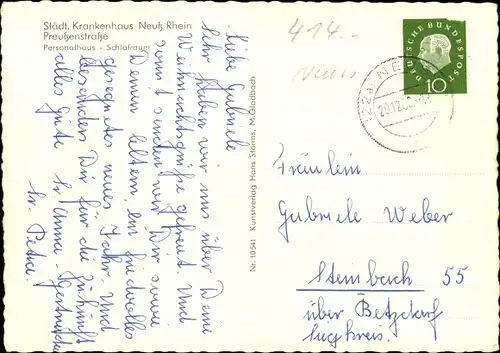 Städt. Krankenhaus Neuß/Rhein
Preußenstraße
Personalhaus - Schlafraum
414.-
Neuss
DEUTSCHE BUNDESPOST
10
(22a) NE
20.12.60
Liebe Gabriele
Sehr haben wir uns über Deine
Weihnachtsgrüße gefreut. Und
somit senden wir Dir sowie
Deinen Eltern, ein friedvolles
gesegnetes neues Jahr. Und
besonders Dir für die Zukunft
alles Gute Sr. Anna Gertrudis
Sr. Petra.
Nr. 10541 Kunstverlag Hans Storms, M.Gladbach
Fräulein
Gabriele Weber
Steinbach 55
über Betzdorf
Siegkreis.